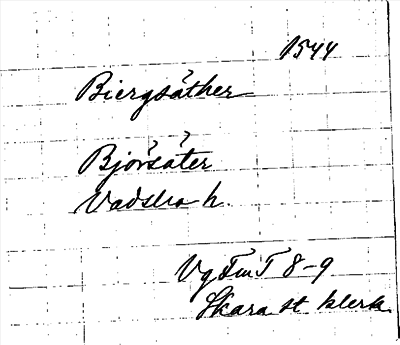 1544
Biergsäther
Björsäter
Vadsbo h.
VgFmT 8-9
Skara st. klerk.